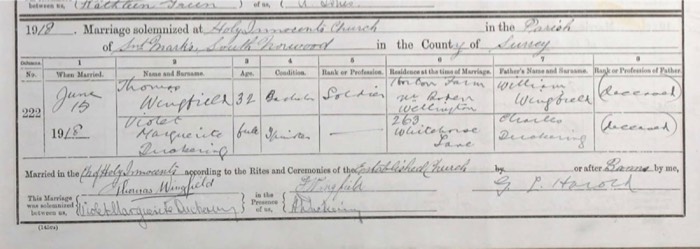 1918. Marriage solemnized at Holy Innocents Church in the Parish
of South Norwood in the County of Surrey
1 2 3 4 5 6 7 8
No. When Married. Name and Surname. Age. Condition. Rank or Profession. Residence at the time of Marriage. Father's Name and Surname. Rank or Profession of Father.
222
June 15 1918
Thomas Wingfield 32 Bachelor Soldier Farm Wellington William Wingfield (deceased)
Violet Marguerite Duckering full Spinster — 263 Whitehorse Lane Charles Duckering (deceased)
Married in the Ch of Holy Innocents according to the Rites and Ceremonies of the Established Church by or after Banns by me,
This Marriage was solemnized between us,
Thomas Wingfield
Violet Marguerite Duckering
in the Presence of us,
Wingfield
Duckering